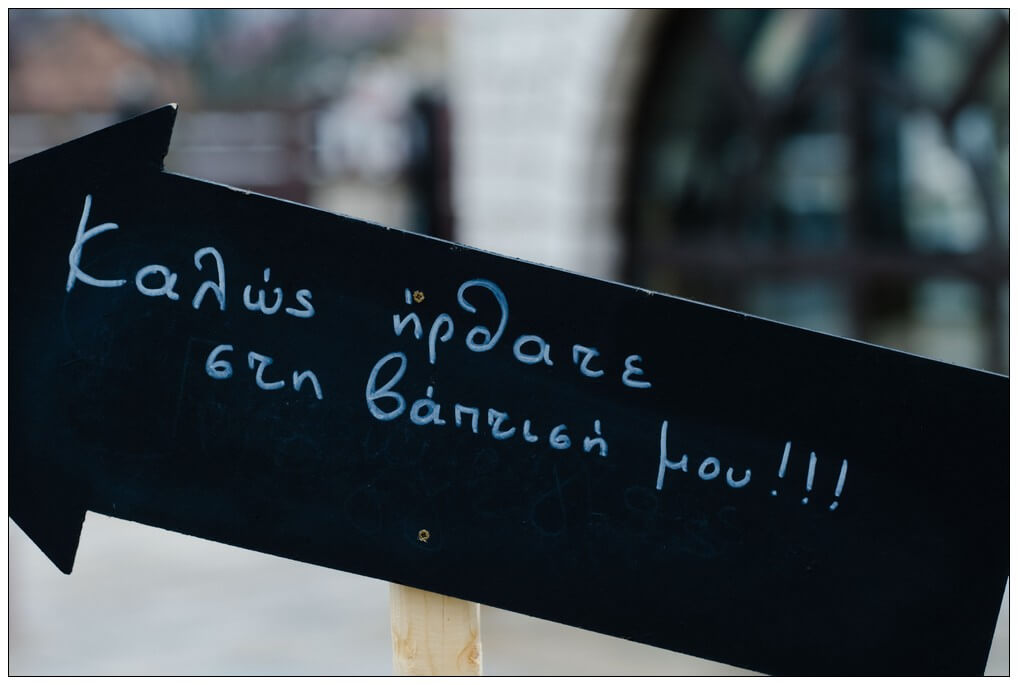 Καλώς ήρθατε
στη βάπτισή μου!!!